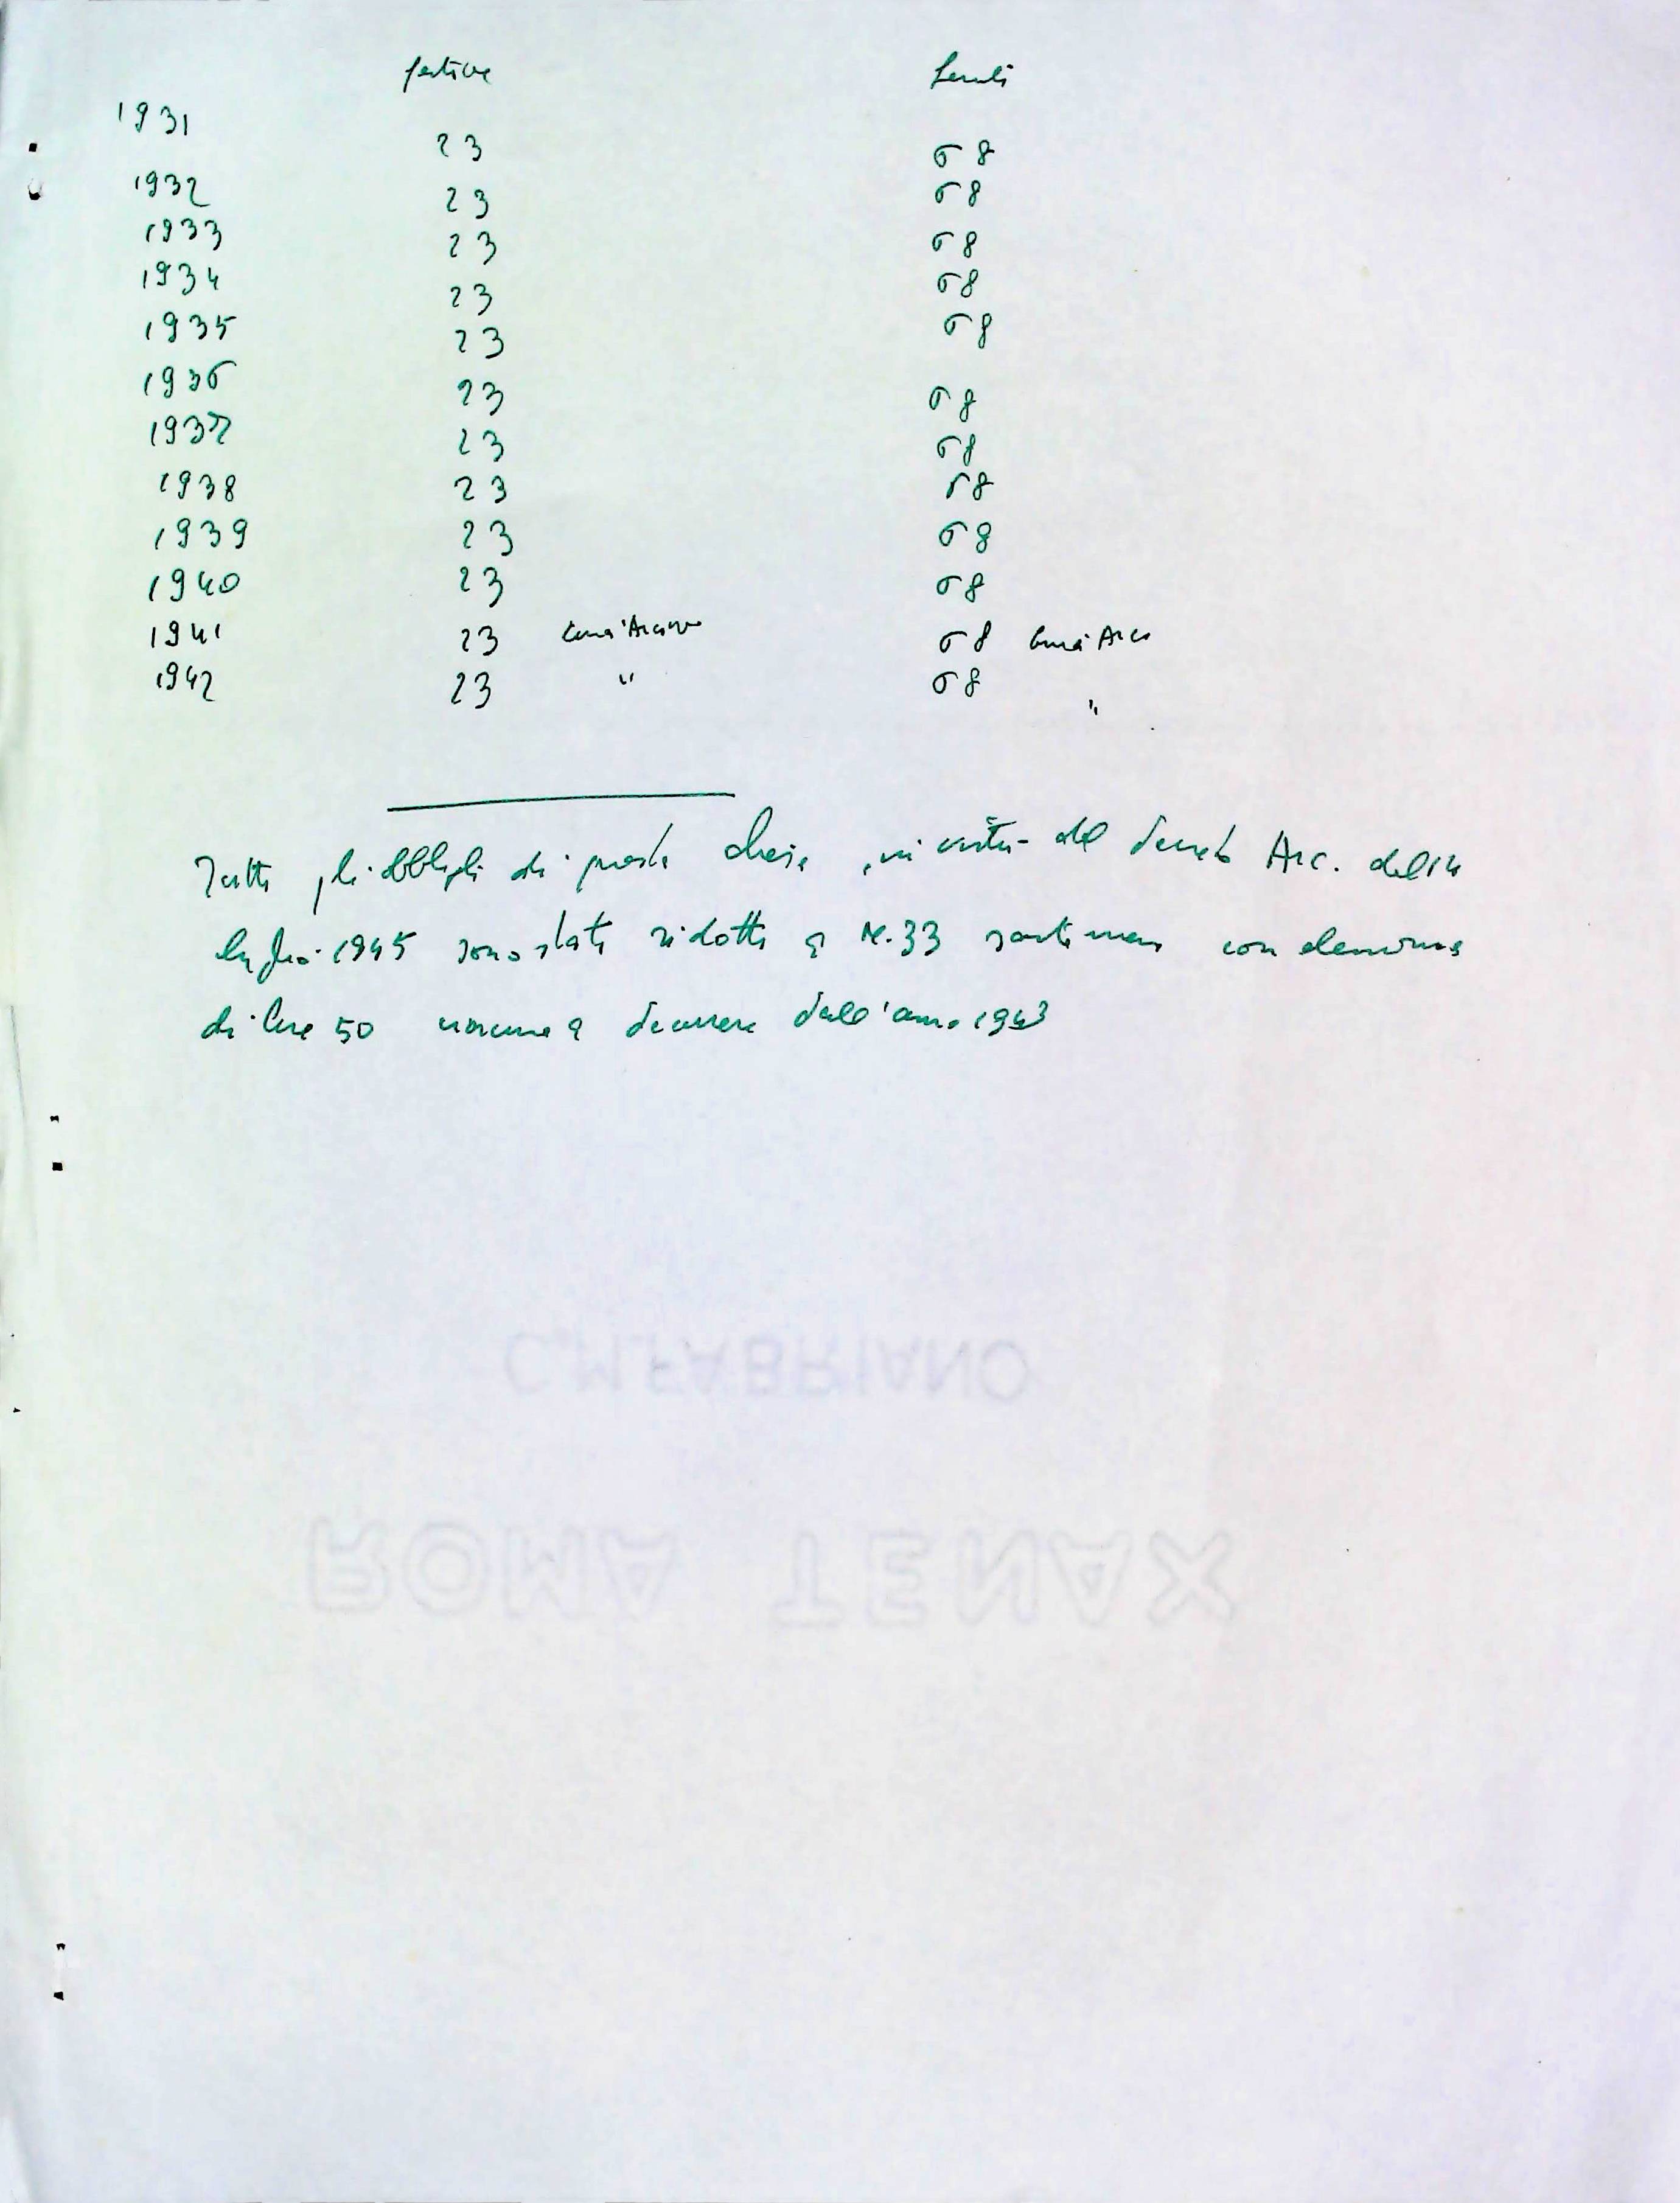 festive feriali
1931
23 68
1932 23 68
1933 23 68
1934 23 68
1935 23 68
1936 23 68
1937 23 68
1938 23 68
1939 23 68
1940 23 68
1941 23 68
1942 23 " 68 "
Tutti gli obblighi di questa chiesa, in virtù del decreto Arc. del 14
luglio 1945 sono stati ridotti a N. 33 con elemosina
di lire 50 a decorrere dall'anno 1943
C.M.FABRIANO
ROMA TENAX